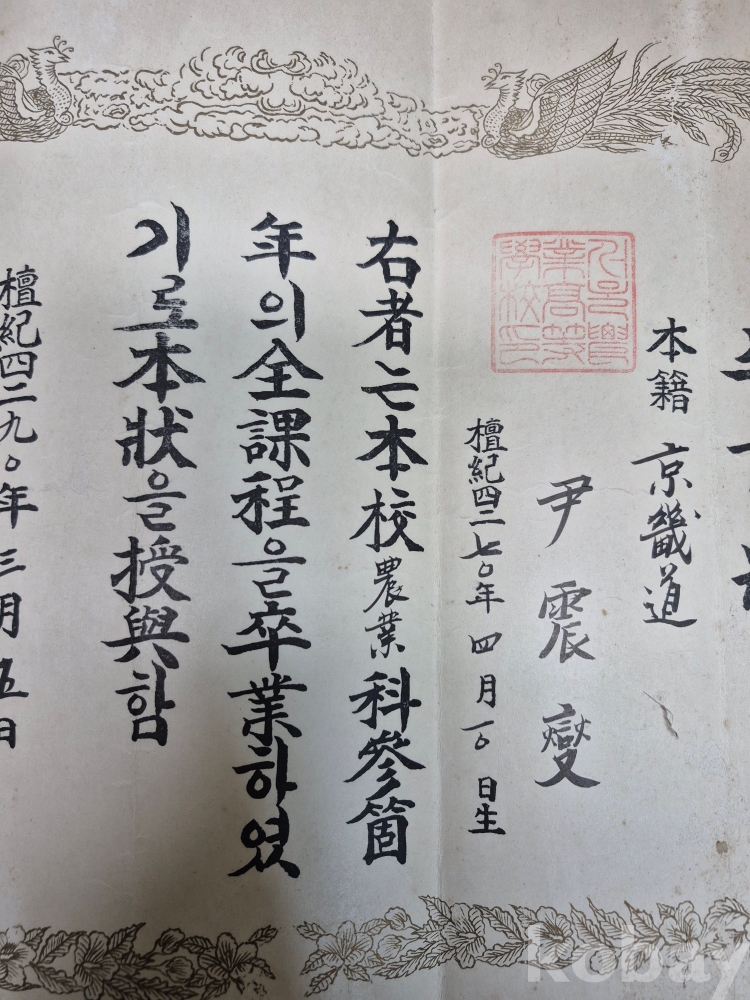 本籍 京畿道
尹震變
檀紀四二七〇年四月一〇日生
右者는本校農業科參箇
年의全課程을卒業하였
기로本狀을授與함
檀紀四二九〇年三月五日
kobay